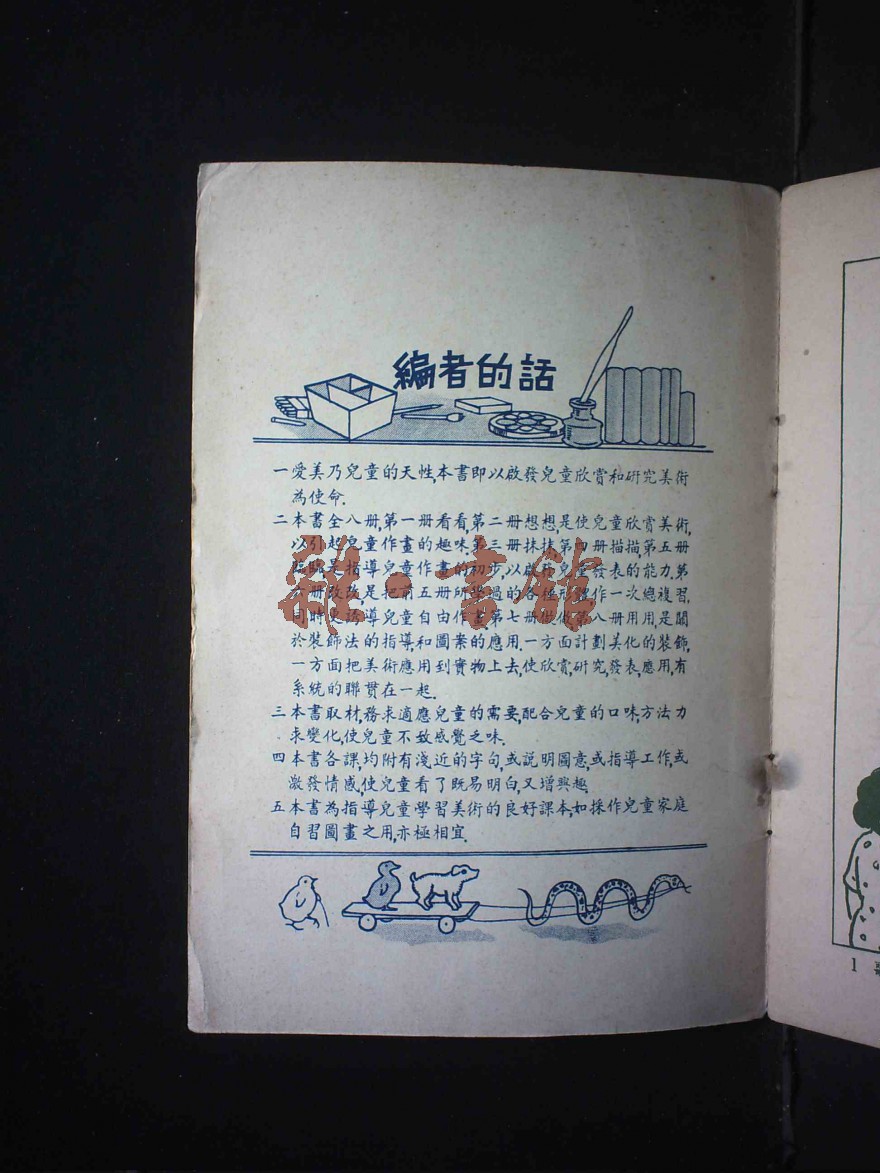 編者的話
一愛美乃兒童的天性,本書即以啟發兒童欣賞和研究美術
為使命.
二本書全八册,第一册看看,第二册想想,是使兒童欣賞美術,
以引起兒童作畫的趣味.第三册抹抹,第四册描描,第五册
臨臨,是指導兒童作畫的初步,以啟發兒童發表的能力.第
六册改改,是把前五册所學過的各種形體作一次總複習,
同時更誘導兒童自由作畫.第七册做做,第八册用用,是關
於裝飾法的指導,和圖案的應用.一方面計劃美化的裝飾,
一方面把美術應用到實物上去,使欣賞,研究,發表,應用,有
系統的聯貫在一起.
三本書取材,務求適應兒童的需要,配合兒童的口味;方法力
求變化,使兒童不致感覺乏味.
四本書各課,均附有淺近的字句,或説明圖意,或指導工作,或
激發情感,使兒童看了既易明白,又增興趣.
五本書為指導兒童學習美術的良好課本,如採作兒童家庭
自習圖畫之用,亦極相宜.
雜·書館
1